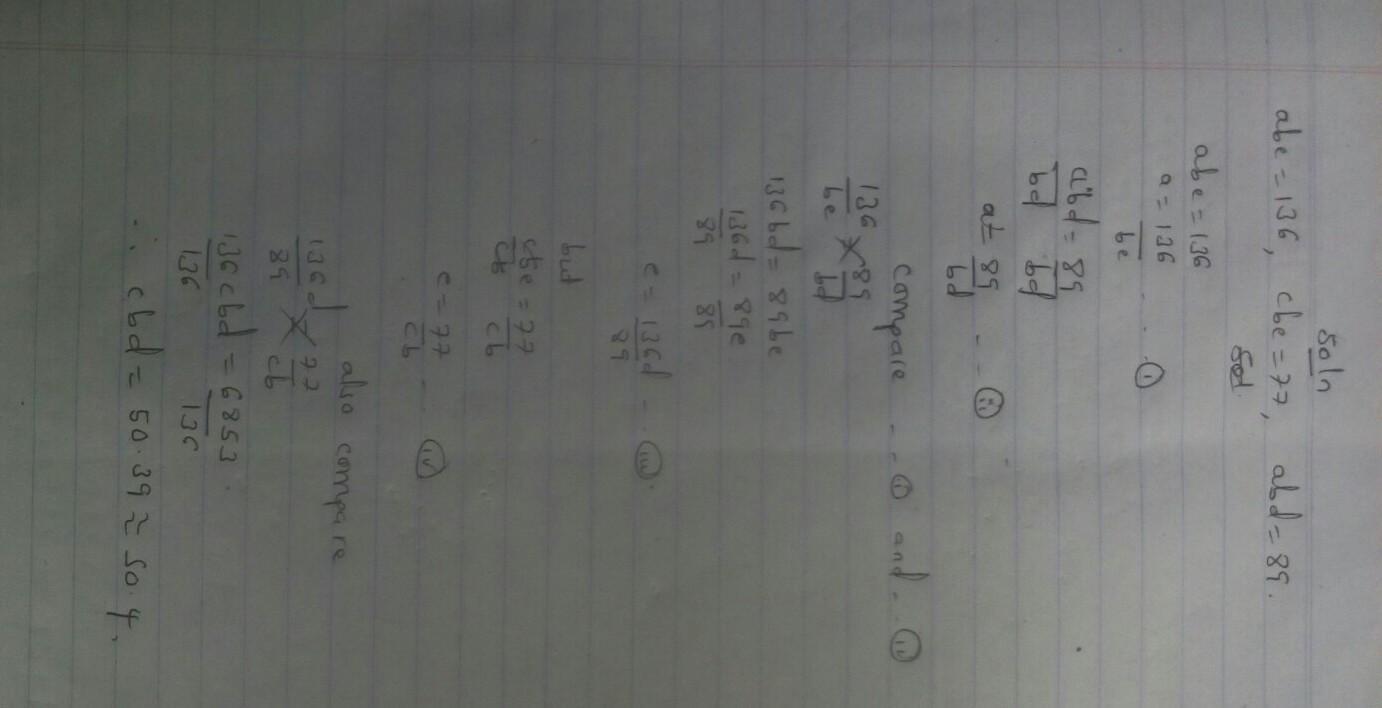 soln
abe = 136, cbe = 77, abd = 89.
abe = 136
a = 136/be . . . (i)
abd/bd = 89/bd
a = 89/bd . . . (ii)
Compare . . (i) and . (ii)
136/be × 89/bd
136bd = 89be
136d/89 = 89e/89
e = 136d/89 . . . (iii).
but
cbe/cb = 77/cb
e = 77/cb . . . (iv)
also compare
136d/89 × 77/cb
136cbd/136 = 6853/136
∴ cbd = 50.39 ≈ 50.4.